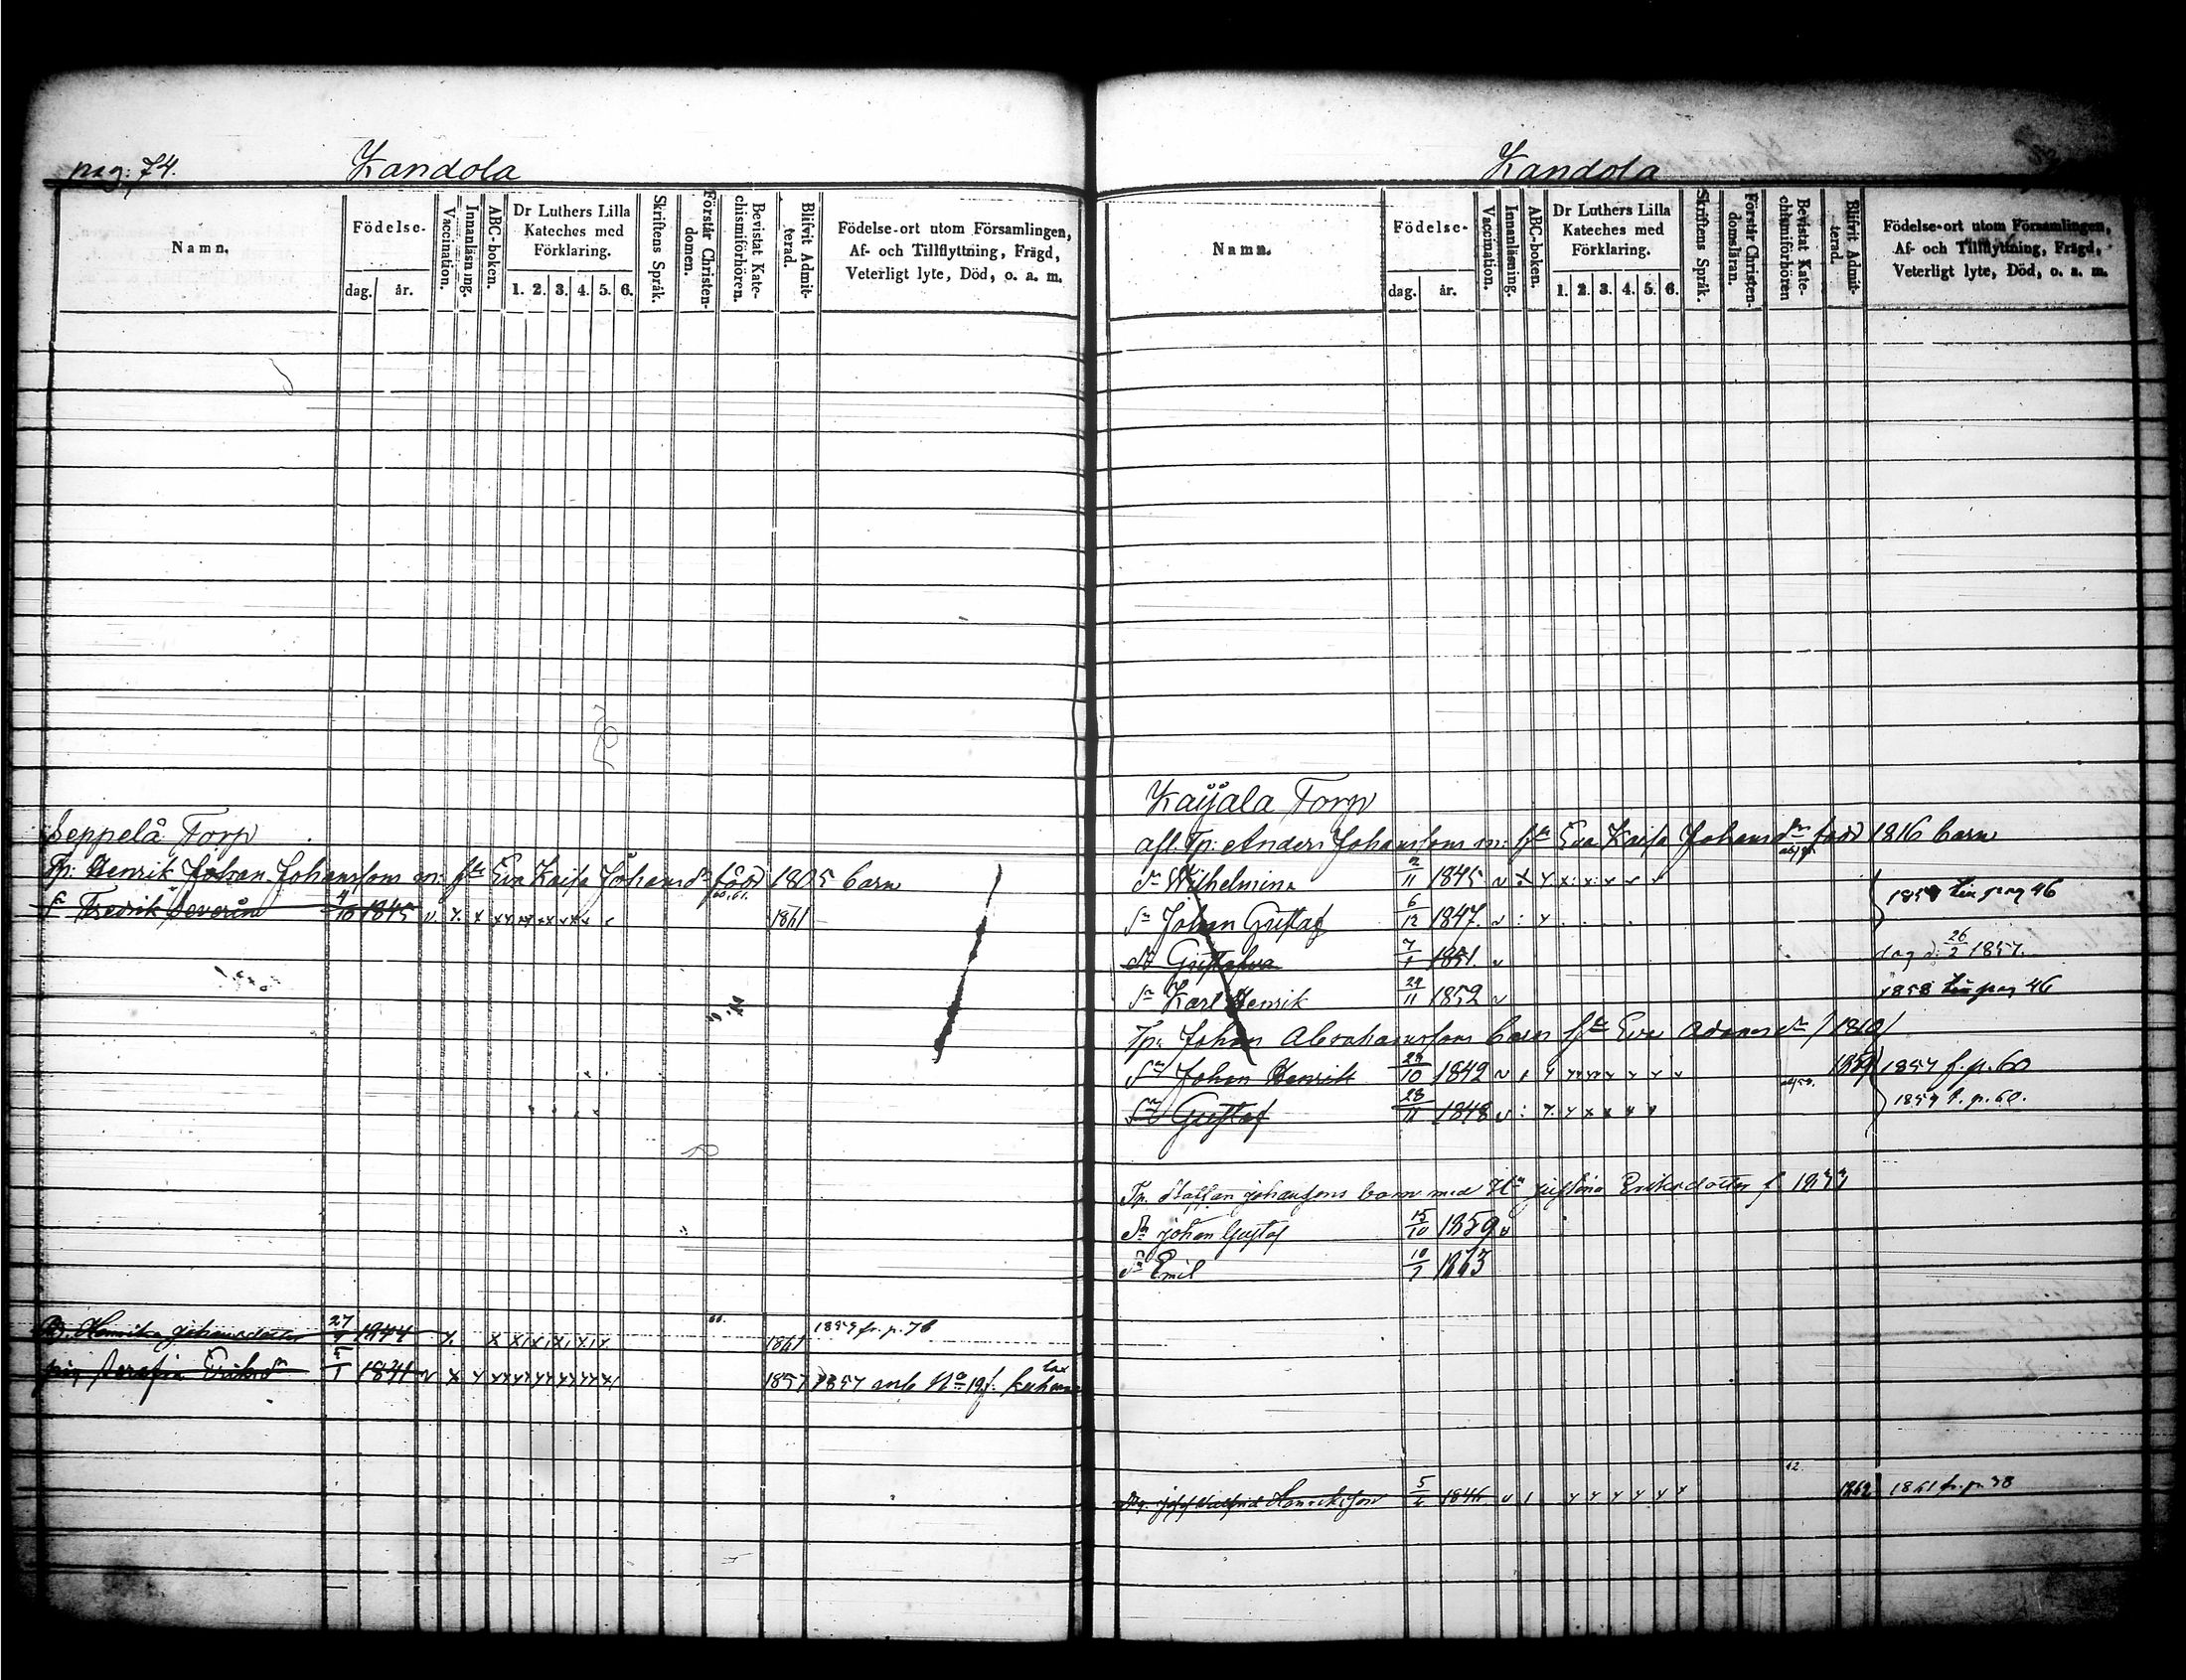 pag: 74. Kandola
Namn. Födelse- dag. år. Vaccination. Innanläsning. ABC-boken. Dr Luthers Lilla Kateches med Förklaring. 1. 2. 3. 4. 5. 6. Skriftens Språk. Förstår Christendomen. Bevistat Katechismiförhören. Blifvit Admitterad. Födelse-ort utom Församlingen, Af- och Tillflyttning, Frägd, Veterligt lyte, Död, o. a. m.
Seppelä Torp
Tp: Henrik Johan Johanssons m: h Eva Kaisa Johansdr född 1805 barn
s. Fredrik Severin 4/10 1845 v x x 1861
Henrika Johansdotter 27 1844 x. x x x x x x 60. 1861 1859 fr. p. 76
pig Serafia Eriksdr 1 1834 v x 1857 1857 enl. No 19 f.
Kandola
Namn. Födelse- dag. år. Vaccination. Innanläsning. ABC-boken. Dr Luthers Lilla Kateches med Förklaring. 1. 2. 3. 4. 5. 6. Skriftens Språk. Förstår Christendomsläran. Bevistat Katechismiförhören Blifvit Admitterad. Födelse-ort utom Församlingen, Af- och Tillflyttning, Frägd, Veterligt lyte, Död, o. a. m.
Kaijala Torp
afl. Tp: Anders Johanssons m: h Eva Kaisa Johansdr född 1816 barn
dr Wilhelmina 2/11 1845 v
Sn Johan Gustaf 6/12 1847. v pag 46
dr Gustafva 7/1 1851. v d: 26/2 1857.
Sn Karl Henrik 29/11 1852 v 1858 pag 46
Tp: Johan Abrahamssons barn h Eva Adamsdr /1810/
Sn Johan Henrik 29/10 1842 v 1859 1857 f. p. 60
Sn Gustaf 28/11 1848 v 1857 f. p. 60.
Tp. Staffan Johanssons barn med Hu Justina Eriksdotter f 1833
Sn Johan Gustaf 15/10 1859 v
Sn Emil 10/7 1863
Josef Walfrid Henriksson 5/4 1846 v 62. 1862 1861 fr. p. 78